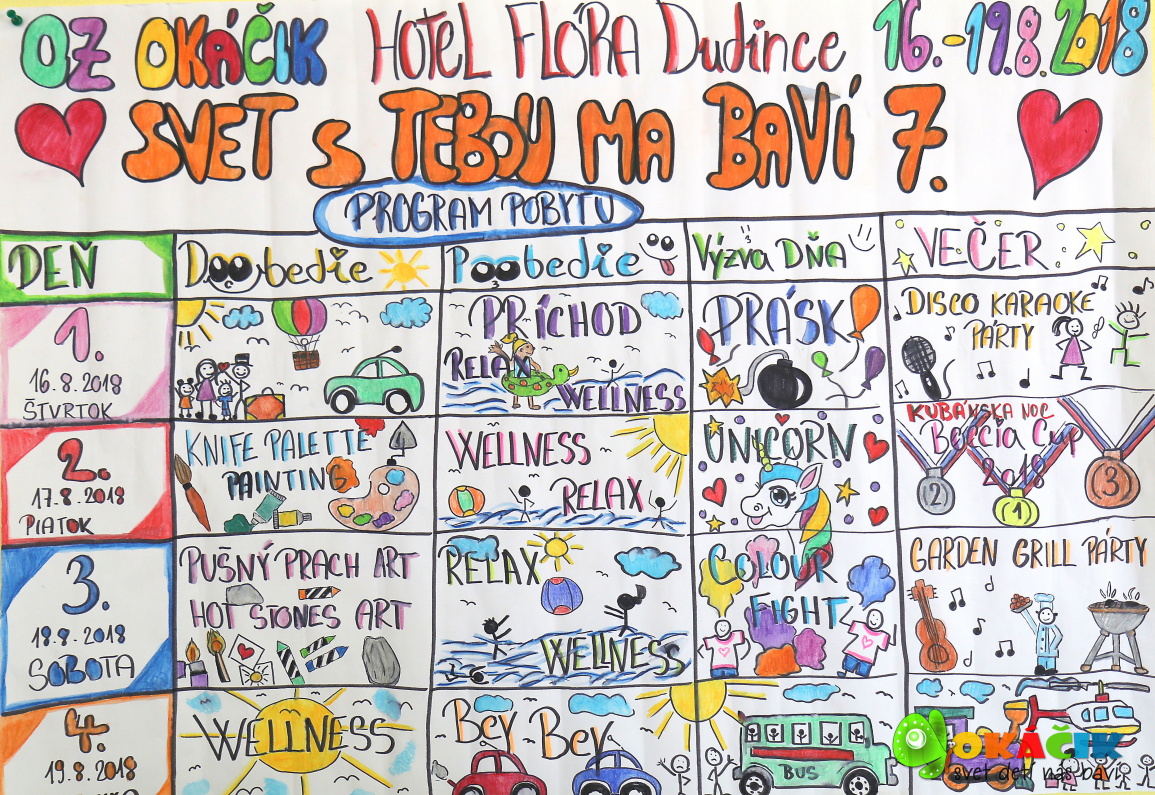 OZ OKÁČIK HOTEL FLÓRA Dudince 16.-19.8.2018
SVET S TEBOU MA BAVÍ 7.
PROGRAM POBYTU
DEŇ
Doobedie
Poobedie
Výzva DŇA
VEČER
1.
16.8.2018
ŠTVRTOK
PRÍCHOD
RELAX
WELLNESS
PRÁSK
DISCO KARAOKE
PÁRTY
2.
17.8.2018
PIATOK
KNIFE PALETTE
PAINTING
WELLNESS
RELAX
UNICORN
KUBÁNSKA NOC
Boccia Cup
2018
2
1
3
3.
18.8.2018
SOBOTA
PUŠNÝ PRACH ART
HOT STONES ART
RELAX
WELLNESS
COLOUR
FIGHT
GARDEN GRILL PÁRTY
4.
19.8.2018
WELLNESS
Bey Bey
BUS
OKÁČIK
svet detí nás baví